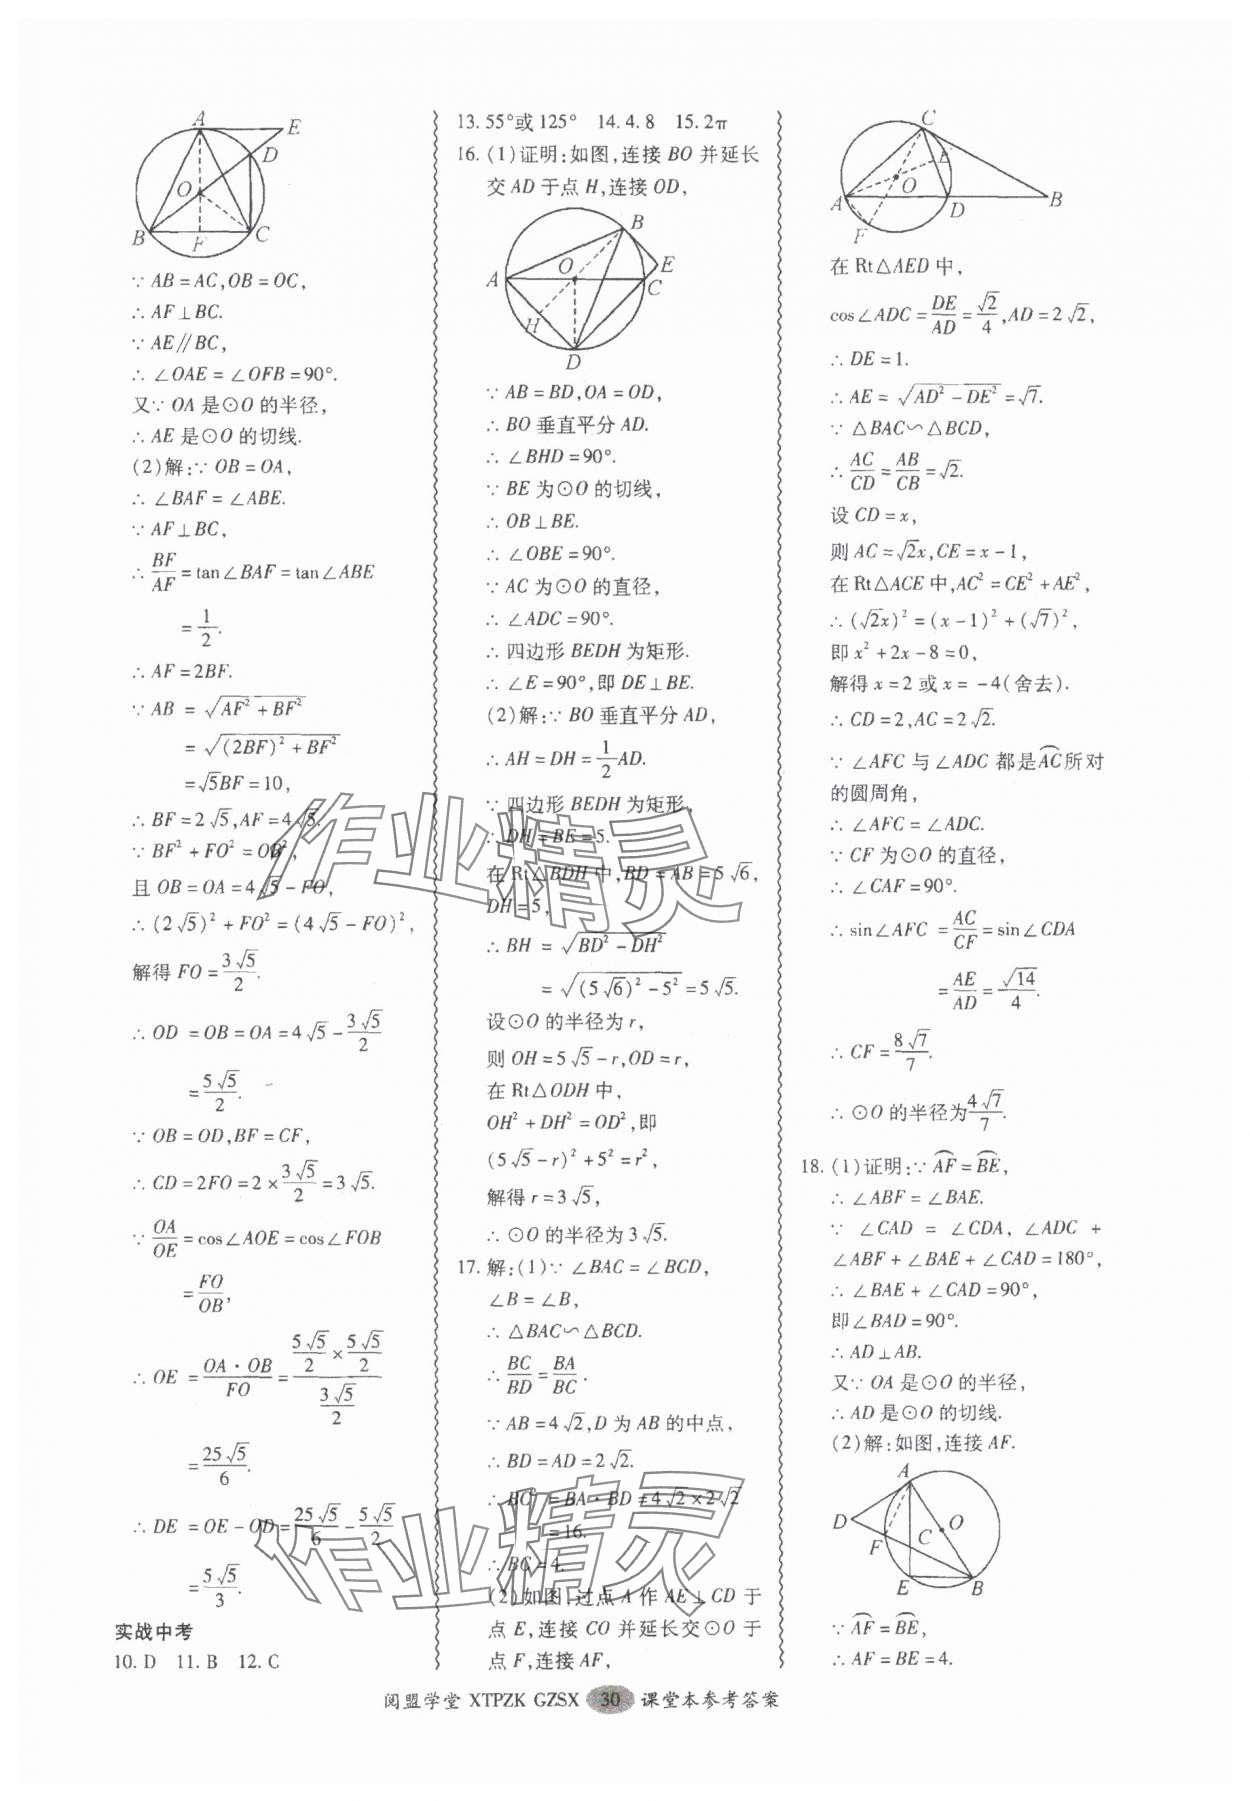 A E D O B F C
∵ AB = AC, OB = OC,
∴ AF ⊥ BC.
∵ AE // BC,
∴ ∠OAE = ∠OFB = 90°.
又∵ OA 是⊙O 的半径,
∴ AE 是⊙O 的切线.
(2)解:∵ OB = OA,
∴ ∠BAF = ∠ABE.
∵ AF ⊥ BC,
∴ BF/AF = tan∠BAF = tan∠ABE
= 1/2.
∴ AF = 2BF.
∵ AB = √(AF² + BF²)
= √((2BF)² + BF²)
= √5BF = 10,
∴ BF = 2√5, AF = 4√5.
∵ BF² + FO² = OB²,
且 OB = OA = 4√5 − FO,
∴ (2√5)² + FO² = (4√5 − FO)²,
解得 FO = 3√5/2.
∴ OD = OB = OA = 4√5 − 3√5/2
= 5√5/2.
∵ OB = OD, BF = CF,
∴ CD = 2FO = 2 × 3√5/2 = 3√5.
∵ OA/OE = cos∠AOE = cos∠FOB
= FO/OB,
∴ OE = OA·OB/FO = (5√5/2 × 5√5/2)/(3√5/2)
= 25√5/6.
∴ DE = OE − OD = 25√5/6 − 5√5/2
= 5√5/3.
实战中考
10. D 11. B 12. C
13. 55°或 125° 14. 4.8 15. 2π
16. (1)证明:如图,连接 BO 并延长
交 AD 于点 H,连接 OD,
B O E A C H D
∵ AB = BD, OA = OD,
∴ BO 垂直平分 AD.
∴ ∠BHD = 90°.
∵ BE 为⊙O 的切线,
∴ OB ⊥ BE.
∴ ∠OBE = 90°.
∵ AC 为⊙O 的直径,
∴ ∠ADC = 90°.
∴ 四边形 BEDH 为矩形.
∴ ∠E = 90°,即 DE ⊥ BE.
(2)解:∵ BO 垂直平分 AD,
∴ AH = DH = 1/2 AD.
∵ 四边形 BEDH 为矩形,
∴ DH = BE = 5.
在 Rt△BDH 中, BD = AB = 5√6,
DH = 5,
∴ BH = √(BD² − DH²)
= √((5√6)² − 5²) = 5√5.
设⊙O 的半径为 r,
则 OH = 5√5 − r, OD = r,
在 Rt△ODH 中,
OH² + DH² = OD²,即
(5√5 − r)² + 5² = r²,
解得 r = 3√5,
∴ ⊙O 的半径为 3√5.
17. 解:(1)∵ ∠BAC = ∠BCD,
∠B = ∠B,
∴ △BAC∽△BCD.
∴ BC/BD = BA/BC.
∵ AB = 4√2, D 为 AB 的中点,
∴ BD = AD = 2√2.
∴ BC² = BA·BD = 4√2 × 2√2
= 16.
∴ BC = 4.
(2)如图,过点 A 作 AE ⊥ CD 于
点 E,连接 CO 并延长交⊙O 于
点 F,连接 AF,
C E O A D B F
在 Rt△AED 中,
cos∠ADC = DE/AD = √2/4, AD = 2√2,
∴ DE = 1.
∴ AE = √(AD² − DE²) = √7.
∵ △BAC∽△BCD,
∴ AC/CD = AB/CB = √2.
设 CD = x,
则 AC = √2x, CE = x − 1,
在 Rt△ACE 中, AC² = CE² + AE²,
∴ (√2x)² = (x − 1)² + (√7)²,
即 x² + 2x − 8 = 0,
解得 x = 2 或 x = −4(舍去).
∴ CD = 2, AC = 2√2.
∵ ∠AFC 与 ∠ADC 都是⌒AC所对
的圆周角,
∴ ∠AFC = ∠ADC.
∵ CF 为⊙O 的直径,
∴ ∠CAF = 90°.
∴ sin∠AFC = AC/CF = sin∠CDA
= AE/AD = √14/4.
∴ CF = 8√7/7.
∴ ⊙O 的半径为4√7/7.
18. (1)证明:∵ ⌒AF = ⌒BE,
∴ ∠ABF = ∠BAE.
∵ ∠CAD = ∠CDA, ∠ADC +
∠ABF + ∠BAE + ∠CAD = 180°,
∴ ∠BAE + ∠CAD = 90°,
即∠BAD = 90°.
∴ AD ⊥ AB.
又∵ OA 是⊙O 的半径,
∴ AD 是⊙O 的切线.
(2)解:如图,连接 AF.
A D F C O E B
∵ ⌒AF = ⌒BE,
∴ AF = BE = 4.
作业精灵
作业精灵
阅盟学堂 XTPZK GZSX 30 课堂本参考答案